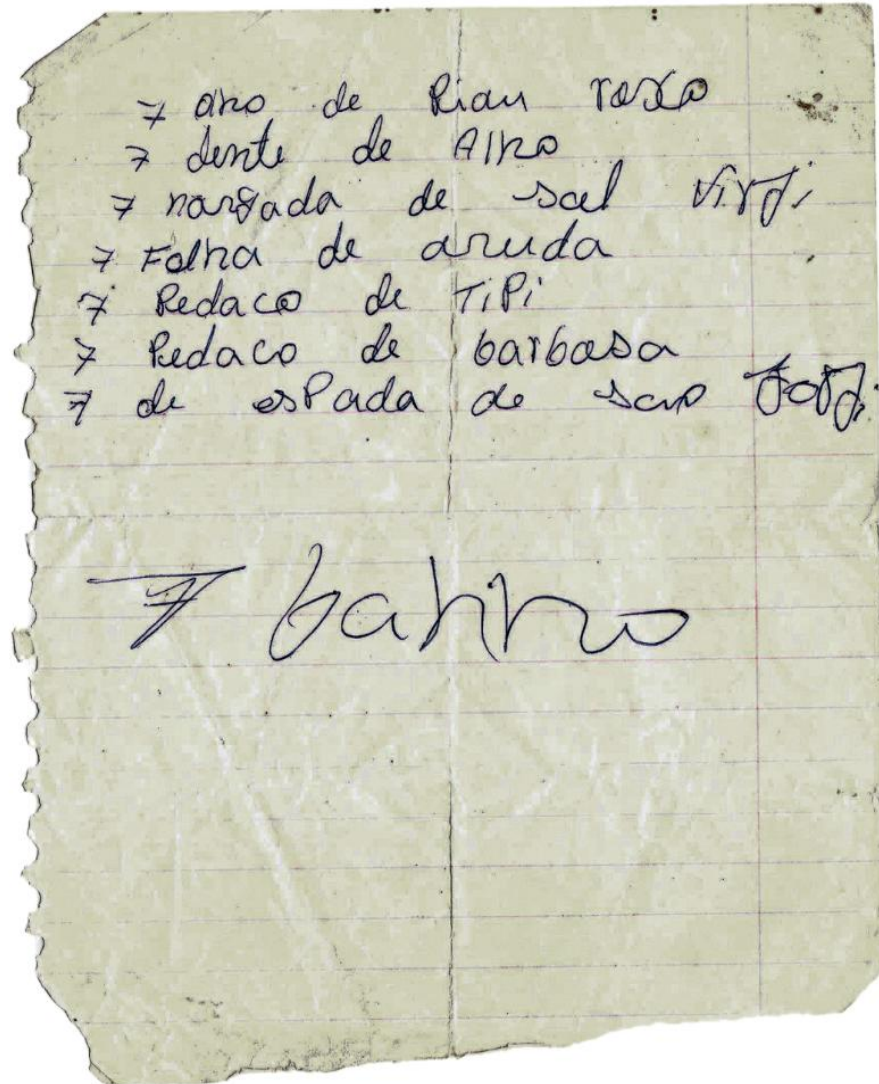 7 olho de Pian roxo
7 dente de Alho
7 nangada de sal Virji
7 Folha de aruda
7 Pedaco de TiPi
7 Pedaco de barbosa
7 de esPada de sao Jorji
7 banho